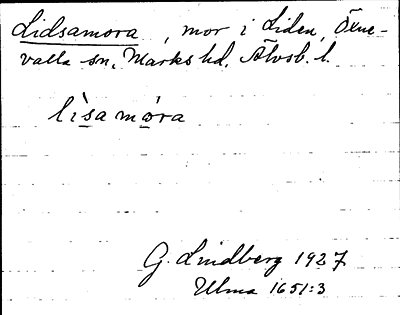 Lidsamora, mor i Liden, Öxne-
valla sn, Marks hd. Älvsb. l.
lìsamóra
G. Lindberg 1927
Ulma 1651:3